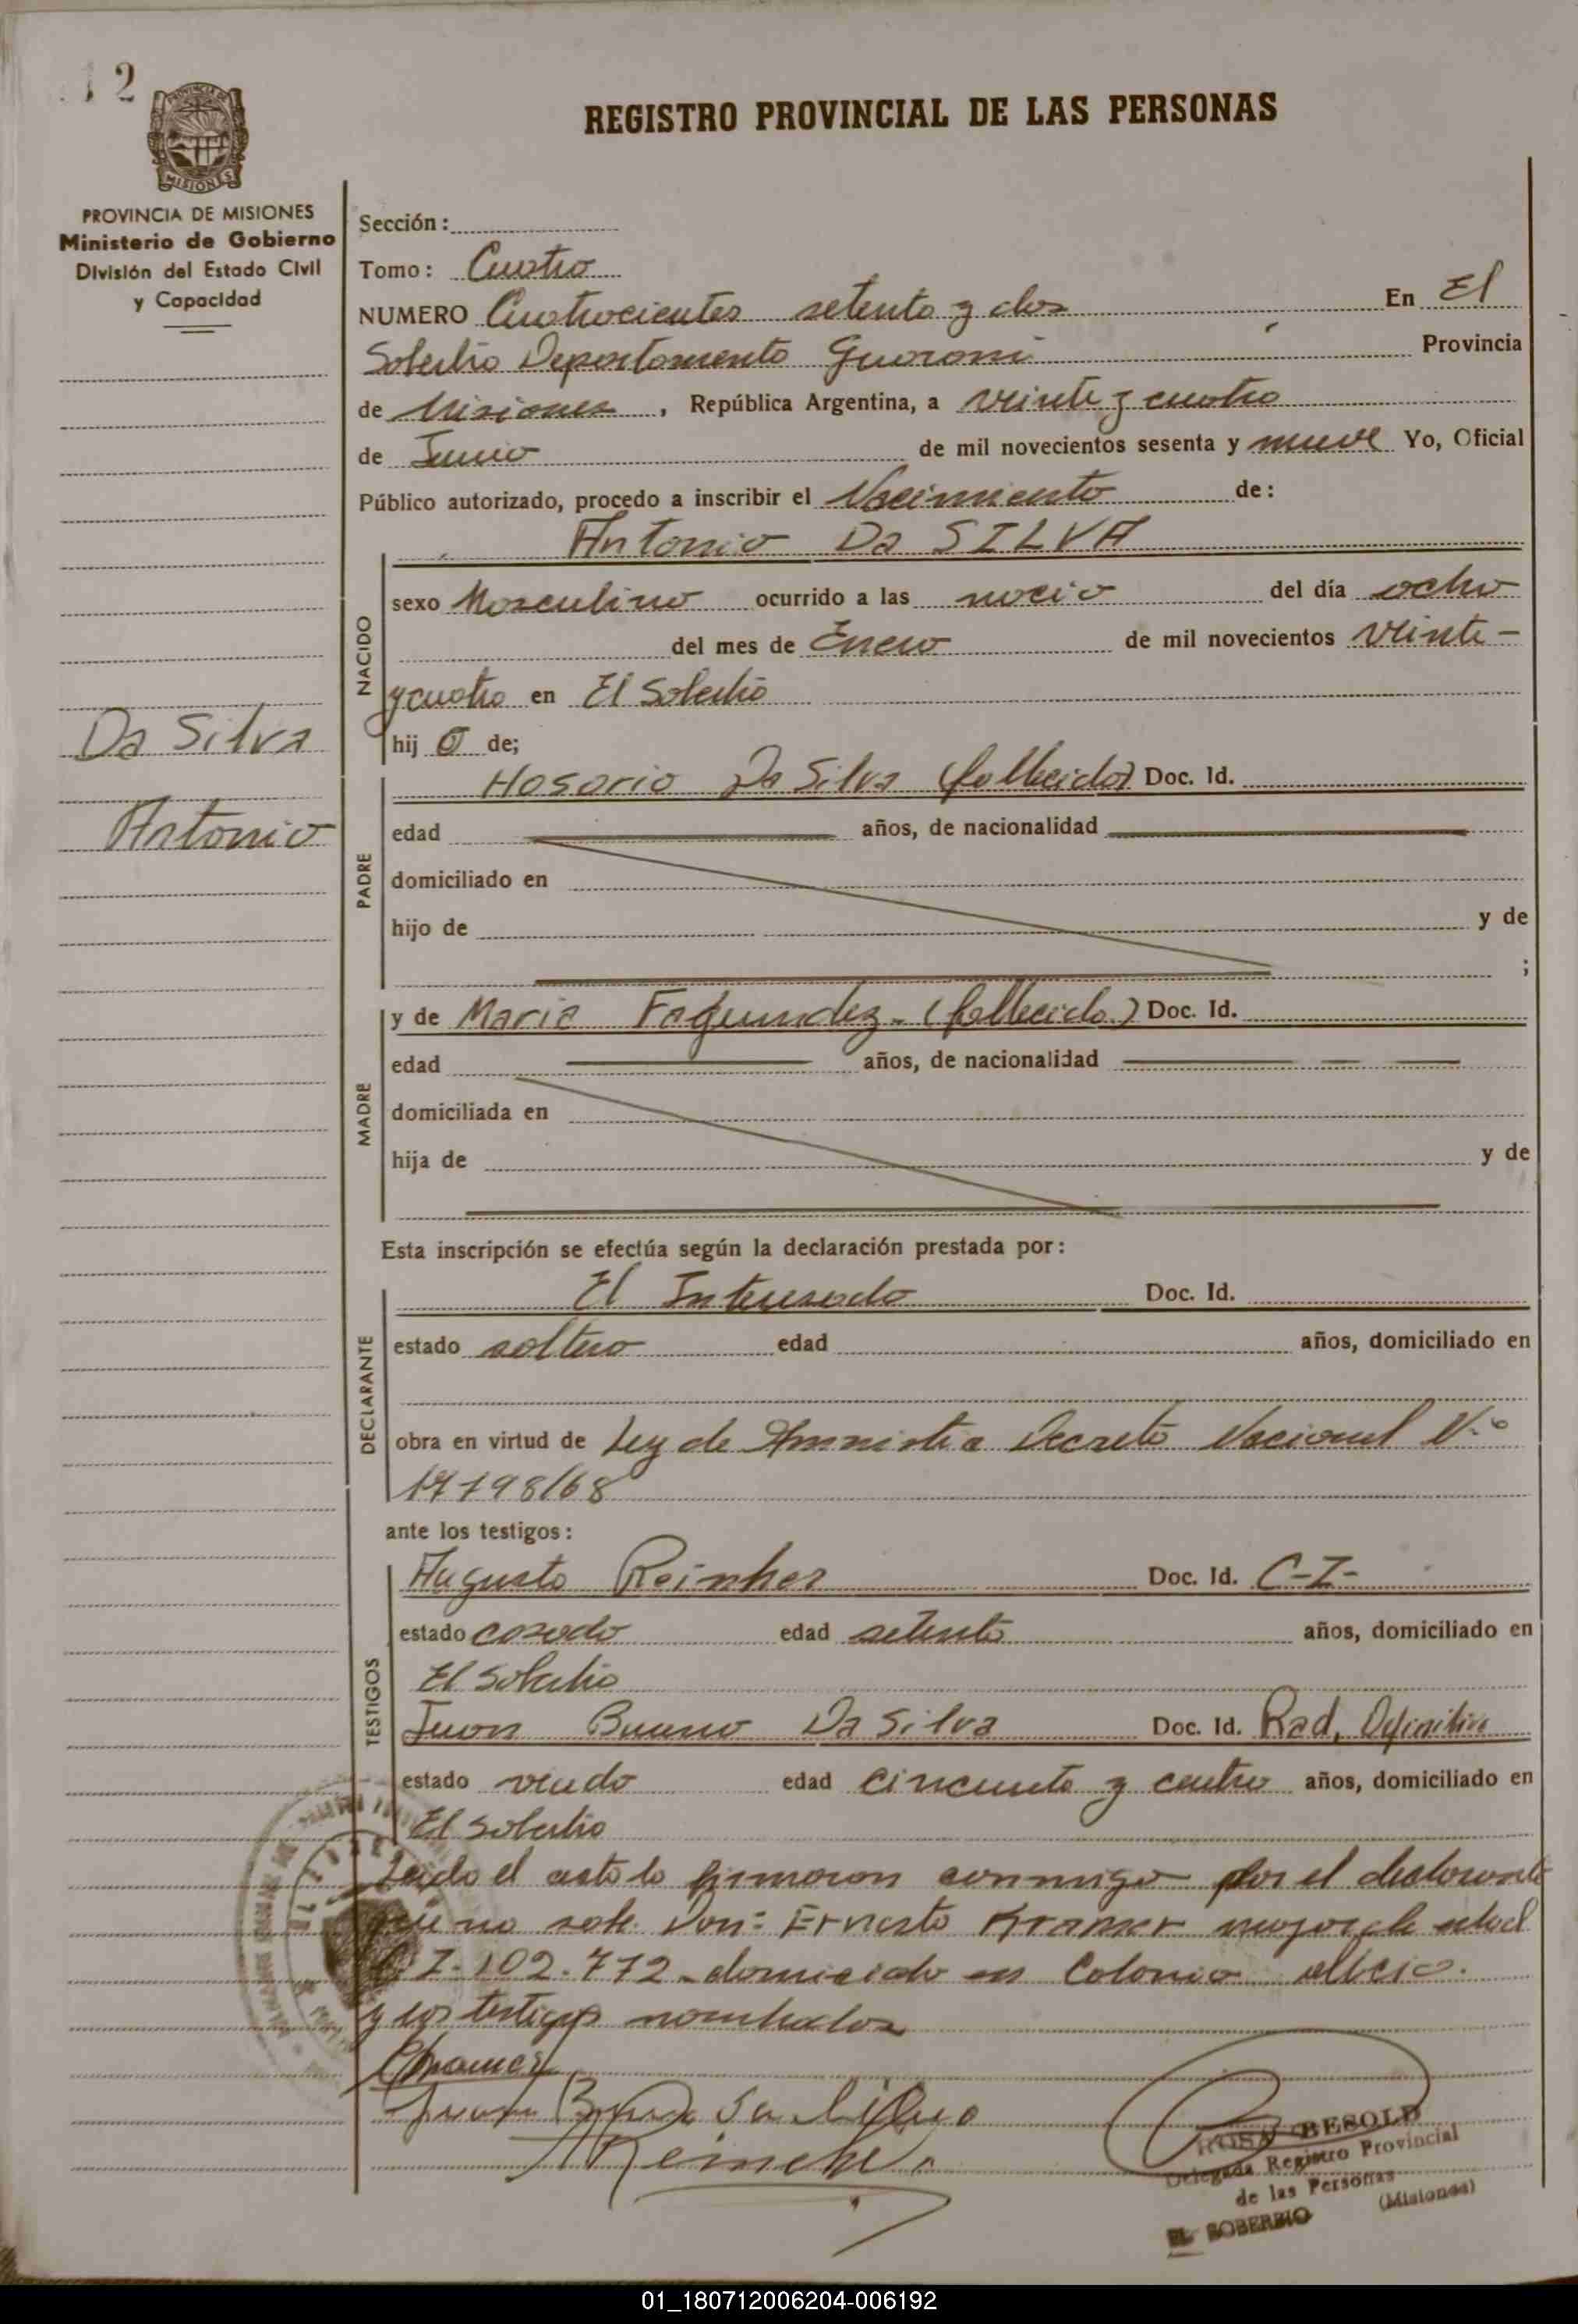 12
REGISTRO PROVINCIAL DE LAS PERSONAS
PROVINCIA DE MISIONES
MISIONES
PROVINCIA DE MISIONES
Ministerio de Gobierno
División del Estado Civil
y Capacidad
Da Silva
Antonio
Sección:
Tomo: Cuatro
NUMERO Cuatrocientos setenta y dos En El
Soberbio Departamento Guarani Provincia
de Misiones, República Argentina, a veinte y cuatro
de Junio de mil novecientos sesenta y nueve Yo, Oficial
Público autorizado, procedo a inscribir el Nacimiento de:
Antonio Da SILVA
NACIDO
sexo Masculino ocurrido a las nacio del día ocho
del mes de Enero de mil novecientos veinte-
y cuatro en El Soberbio
hij o de;
PADRE
Hosorio Da Silva (fallecido) Doc. Id.
edad años, de nacionalidad
domiciliado en
hijo de y de
;
MADRE
y de Maria Fagundez - (fallecida) Doc. Id.
edad años, de nacionalidad
domiciliada en
hija de y de
Esta inscripción se efectúa según la declaración prestada por:
DECLARANTE
El Interesado Doc. Id.
estado soltero edad años, domiciliado en
obra en virtud de Ley de Amnistia Decreto Nacional N.º
17798/68
ante los testigos:
TESTIGOS
Augusto Reinher Doc. Id. C-I-
estado casado edad setenta años, domiciliado en
El Soberbio
Juan Bueno Da Silva Doc. Id. Rad. Definitiva
estado viudo edad cincuenta y cuatro años, domiciliado en
El Soberbio
Leido el acta la firmaron conmigo por el declarante
que no sabe Don: Ernesto Kramer mayor de edad
C I-102.772 - domiciado en Colonia alicia.
y los testigos nombrados
EKramer
Juan Bueno Da Silva
AReinche
ROSA BESOLD
Delegada Registro Provincial
de las Personas
(Misiones)
EL SOBERBIO
01_180712006204-006192